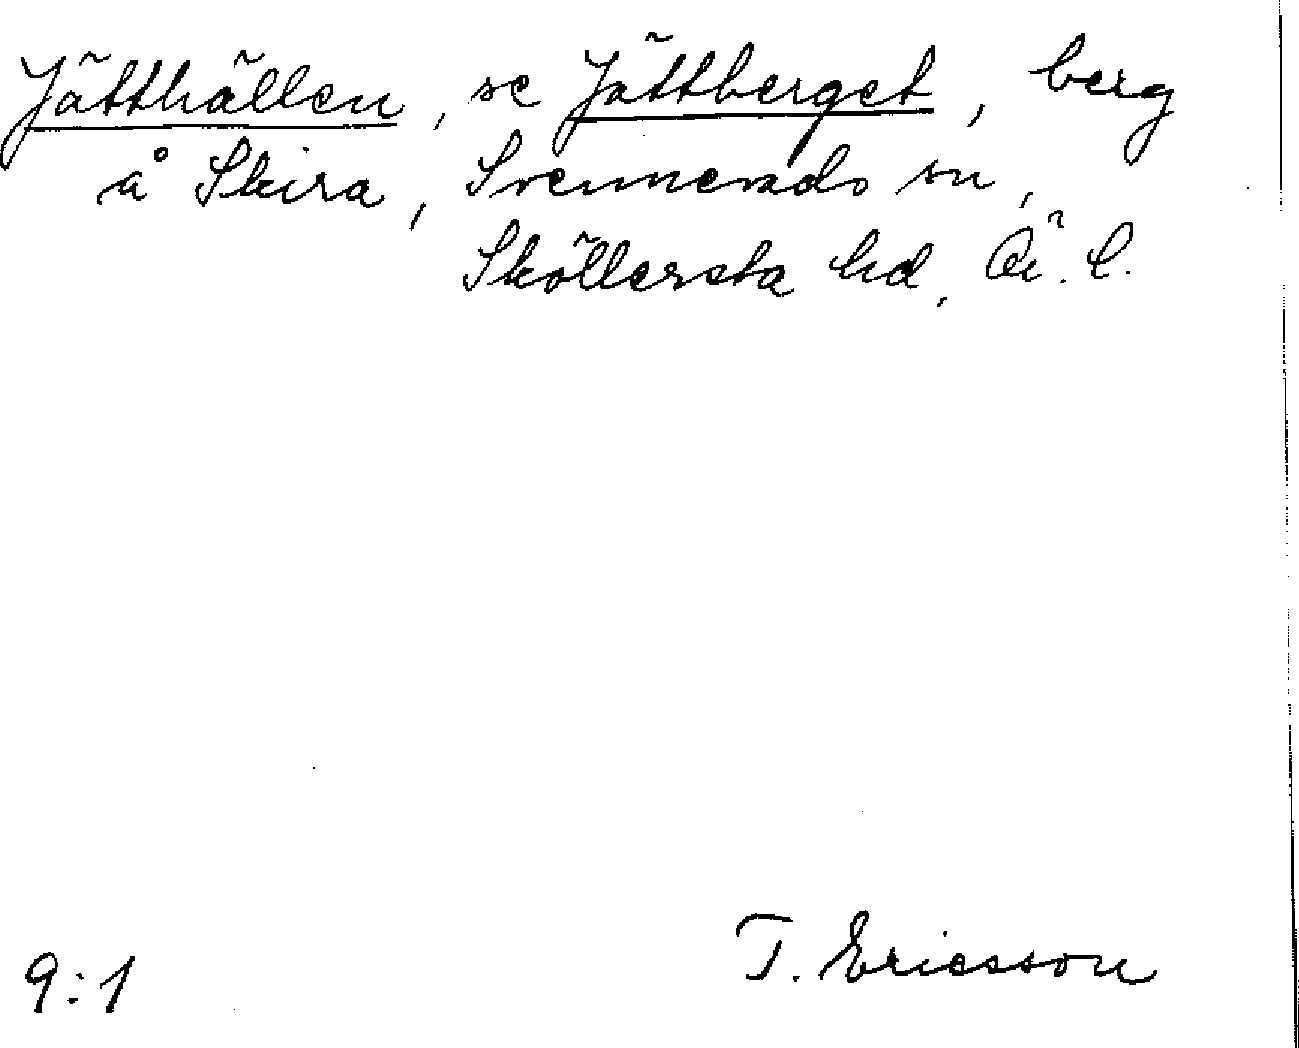 Jätthällen, se Jättberget, berg
å Skira, Svennevads sn,
Sköllersta hd, Ö. l.
9:1 T. Ericsson